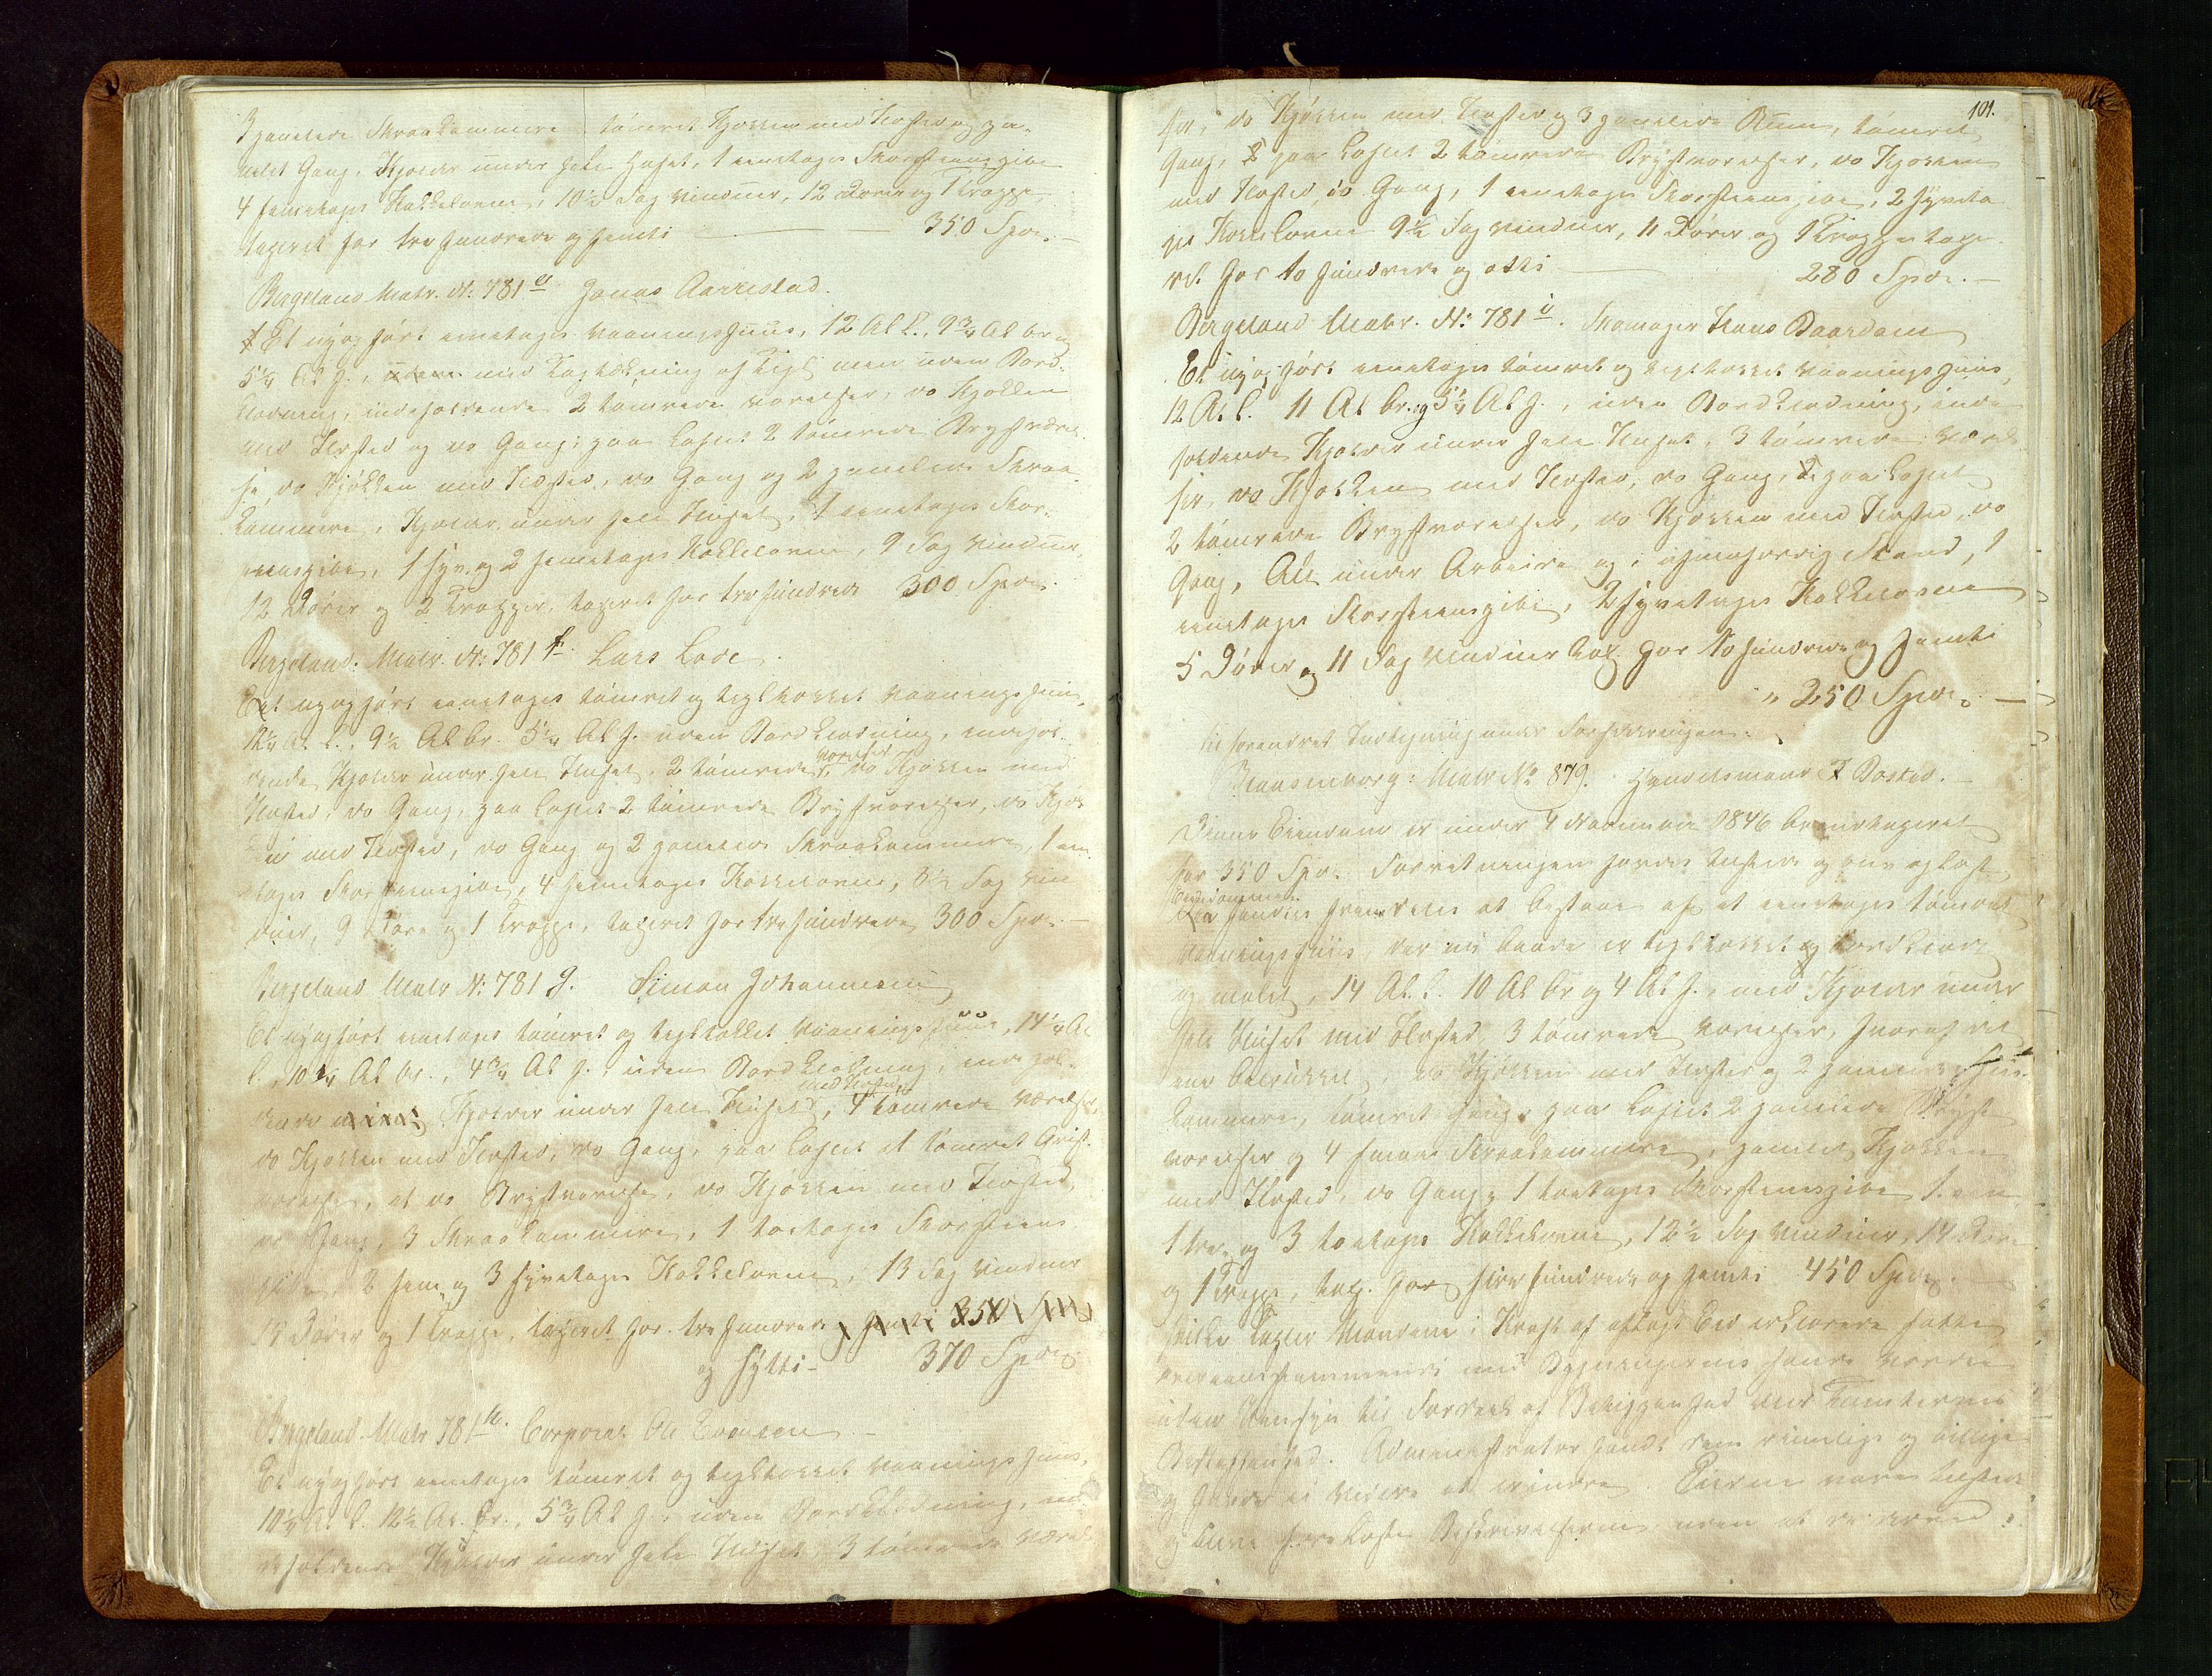 3 panelede Skraakammere, tømret Kjøkken med Ildsted og pa-
nelet Gang, Kjelder under hele Huset, 1 eenetages Skorsteenspibe
4 femetages Kakkelovne, 10½ Fag Vinduer, 12 Døre og 1 Trappe,
taxeret for tre hundrede og femti — 350 Spd. —
Bergeland Matr. N: 781 e Jonas Aarrestad.
Et nyopført eenetages Vaaningshuus, 12 Al. l., 9¾ Al br. og
5¼ Al. h., med Tagtækning af Tegl men uden Bord-
klædning, indeholdende 2 tømrede Værelser, do Kjøkken
med Ildsted og do Gang; paa Loftet 2 tømrede Brystværel-
se, do Kjøkken med Ildsted, do Gang og 2 panelede Skraa-
kammere, Kjelder under hele Huset, 1 eenetages Skor-
steenspibe, 1 syv- og 2 femetages Kakkelovne, 9 Fag Vinduer,
12 Dører og 2 Trapper, taxeret for tre hundrede 300 Spd.
Bergeland: Matr. N: 781 f. Lars Lode.
Et nyopført eenetages tømret og teglhækket Vaaningshuus,
12¼ Al. l., 9½ Al br. 5¼ Al h. uden Bordklædning, indehol-
dende Kjelder under hele Huset, 2 tømrede Værelser, do Kjøkken med
Ildsted, do Gang, paa Loftet 2 tømrede Brystværelser, do Kjøk-
ken med Ildsted, do Gang og 2 panelede Skraakammere, 1 een-
etages Skorsteenspibe, 4 femetages Kakkelovne, 8½ Fag Vin-
duer, 9 Døre og 1 Trappe, taxeret for tre hundrede 300 Spd. —
Bergeland Matr N: 781 g. Simon Johannesen
Et nyopført eenetages tømret og tegltækket Vaaningshuus, 14¼ Al
l., 10¼ Al br., 4¾ Al h., uden Bordklædning, indehol-
dende Kjelder under hele Huset med Ildsted, 4 tømrede Værelser,
do Kjøkken med Ildsted, do Gang, paa Loftet et tømret Qvist-
værelse, et do Brystværelse, do Kjøkken med Ildsted,
do Gang, 3 Skraakammere, 1 toetages Skorsteens-
pibe, 2 fem- og 3 syvetages Kakkelovne, 13 Fag Vinduer
Dører og 1 Trappe, taxeret for tre hundrede femti 350 Spd
og sytti — 370 Spd.
Bergeland Matr 781 h. Corporal Ole
Et nyopført eenetages tømret og tegltækket Vaaningshuus,
10¼ Al. l. 12½ Al. br., 5¾ Al h., uden Bordklædning, in-
deholdende Kjelder under hele Huset, 3 tømrede Værel-
101.
ser, do Kjøkken med Ildsted og 3 panelede Rum, tømret
Gang, paa Loftet 2 tømrede Brystværelser, do Kjøkken
med Ildsted, do Gang, 1 eenetages Skorsteenspibe, 2 syveta-
ges Kakkelovne 9½ Fag Vinduer, 11 Dører og 1 Trappe taxe-
ret for to hundrede og otti — 280 Spd. —
Bergeland Matr. N: 781 i. Skomager Hans Baardsen
Et nyopført eenetages tømret og tegltækket Vaaningshuus,
12 Al. l. 11 Al br. og 5¼ Al h., uden Bordklædning, inde-
holdende Kjelder under hele Huset, 3 tømrede Værel-
ser, do Kjøkken med Ildsted, do Gang, paa Loftet
2 tømrede Brystværelser, do Kjøkken med Ildsted, do
Gang, Alt under Arbeide og i ufuldfærdig Stand, 1
eenetages Skorsteenspibe, 2 syvetages Kakkelovne
5 Dører og 11 Fag Vinduer tax. for to hundrede og femti
" 250 Spd. —
til forandret Indtegning under Forsikkringen.
Blaasenborg: Matr No 879. Handelsmand T Bastad. —
Denne Eiendom er under 4 November 1846 brandtaxeret
for 350 Spd. Forretningen havdes tilstede og blev oplæst.
Eiendommen
fandtes fremdeles at bestaae af et eenetages tømret
Vaaningshuus, der nu baade er tegltækket og bordklædt
og malet, 14 Al. l. 10 Al br og 4 Al h., med Kjelder under
hele Huset med Ildsted, 3 tømrede Værelser, hvoraf det
ene betrukket, do Kjøkken med Ildsted og 2 panelede
kammere, tømret Gang; paa Loftet 2 panelede Bryst-
værelser og 4 smaae Skraakammere, panelet Kjøkken
med Ildsted, do Gang, 1 toetages Skorsteenspibe 1 een
1 tre- og 3 toetages Kakkelovne, 12½ Fag Vinduer, 14 Døre
og 1 Trappe, tax. for fire hundrede og femti 450 Spd. —
Hvilke Taxter Mændene i Kraft af aflagt Eed erklærede satte
overeensstemmende med Bygningernes sande Værdie
uden Hensyn til Fordeel af Beliggenhed eller Tomternes
Beskaffenhed. Administrator fandt dem rimelige og billige
og havde ei videre at erindre. Eierne vare tilstede
og bleve forelæste Beskrivelserne uden at de derved